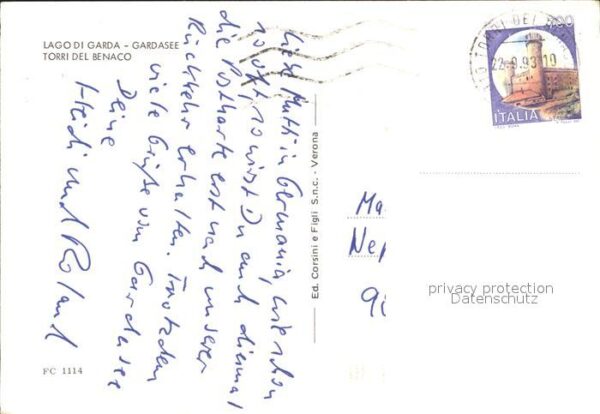 LAGO DI GARDA - GARDASEE
TORRI DEL BENACO
Liebe Mutti in Germania, wie schon
so oft, so wirst Du auch diesmal
die Postkarte erst nach unserer
Rückkehr erhalten. Trotzdem
viele Grüße vom Gardasee
Deine
Heidi und Roland
FC 1114
Ed. Corsini e Figli S.n.c. - Verona
TORRI DEL
22.9.93 10
ITALIA
Ma
Ne
privacy protection
Datenschutz